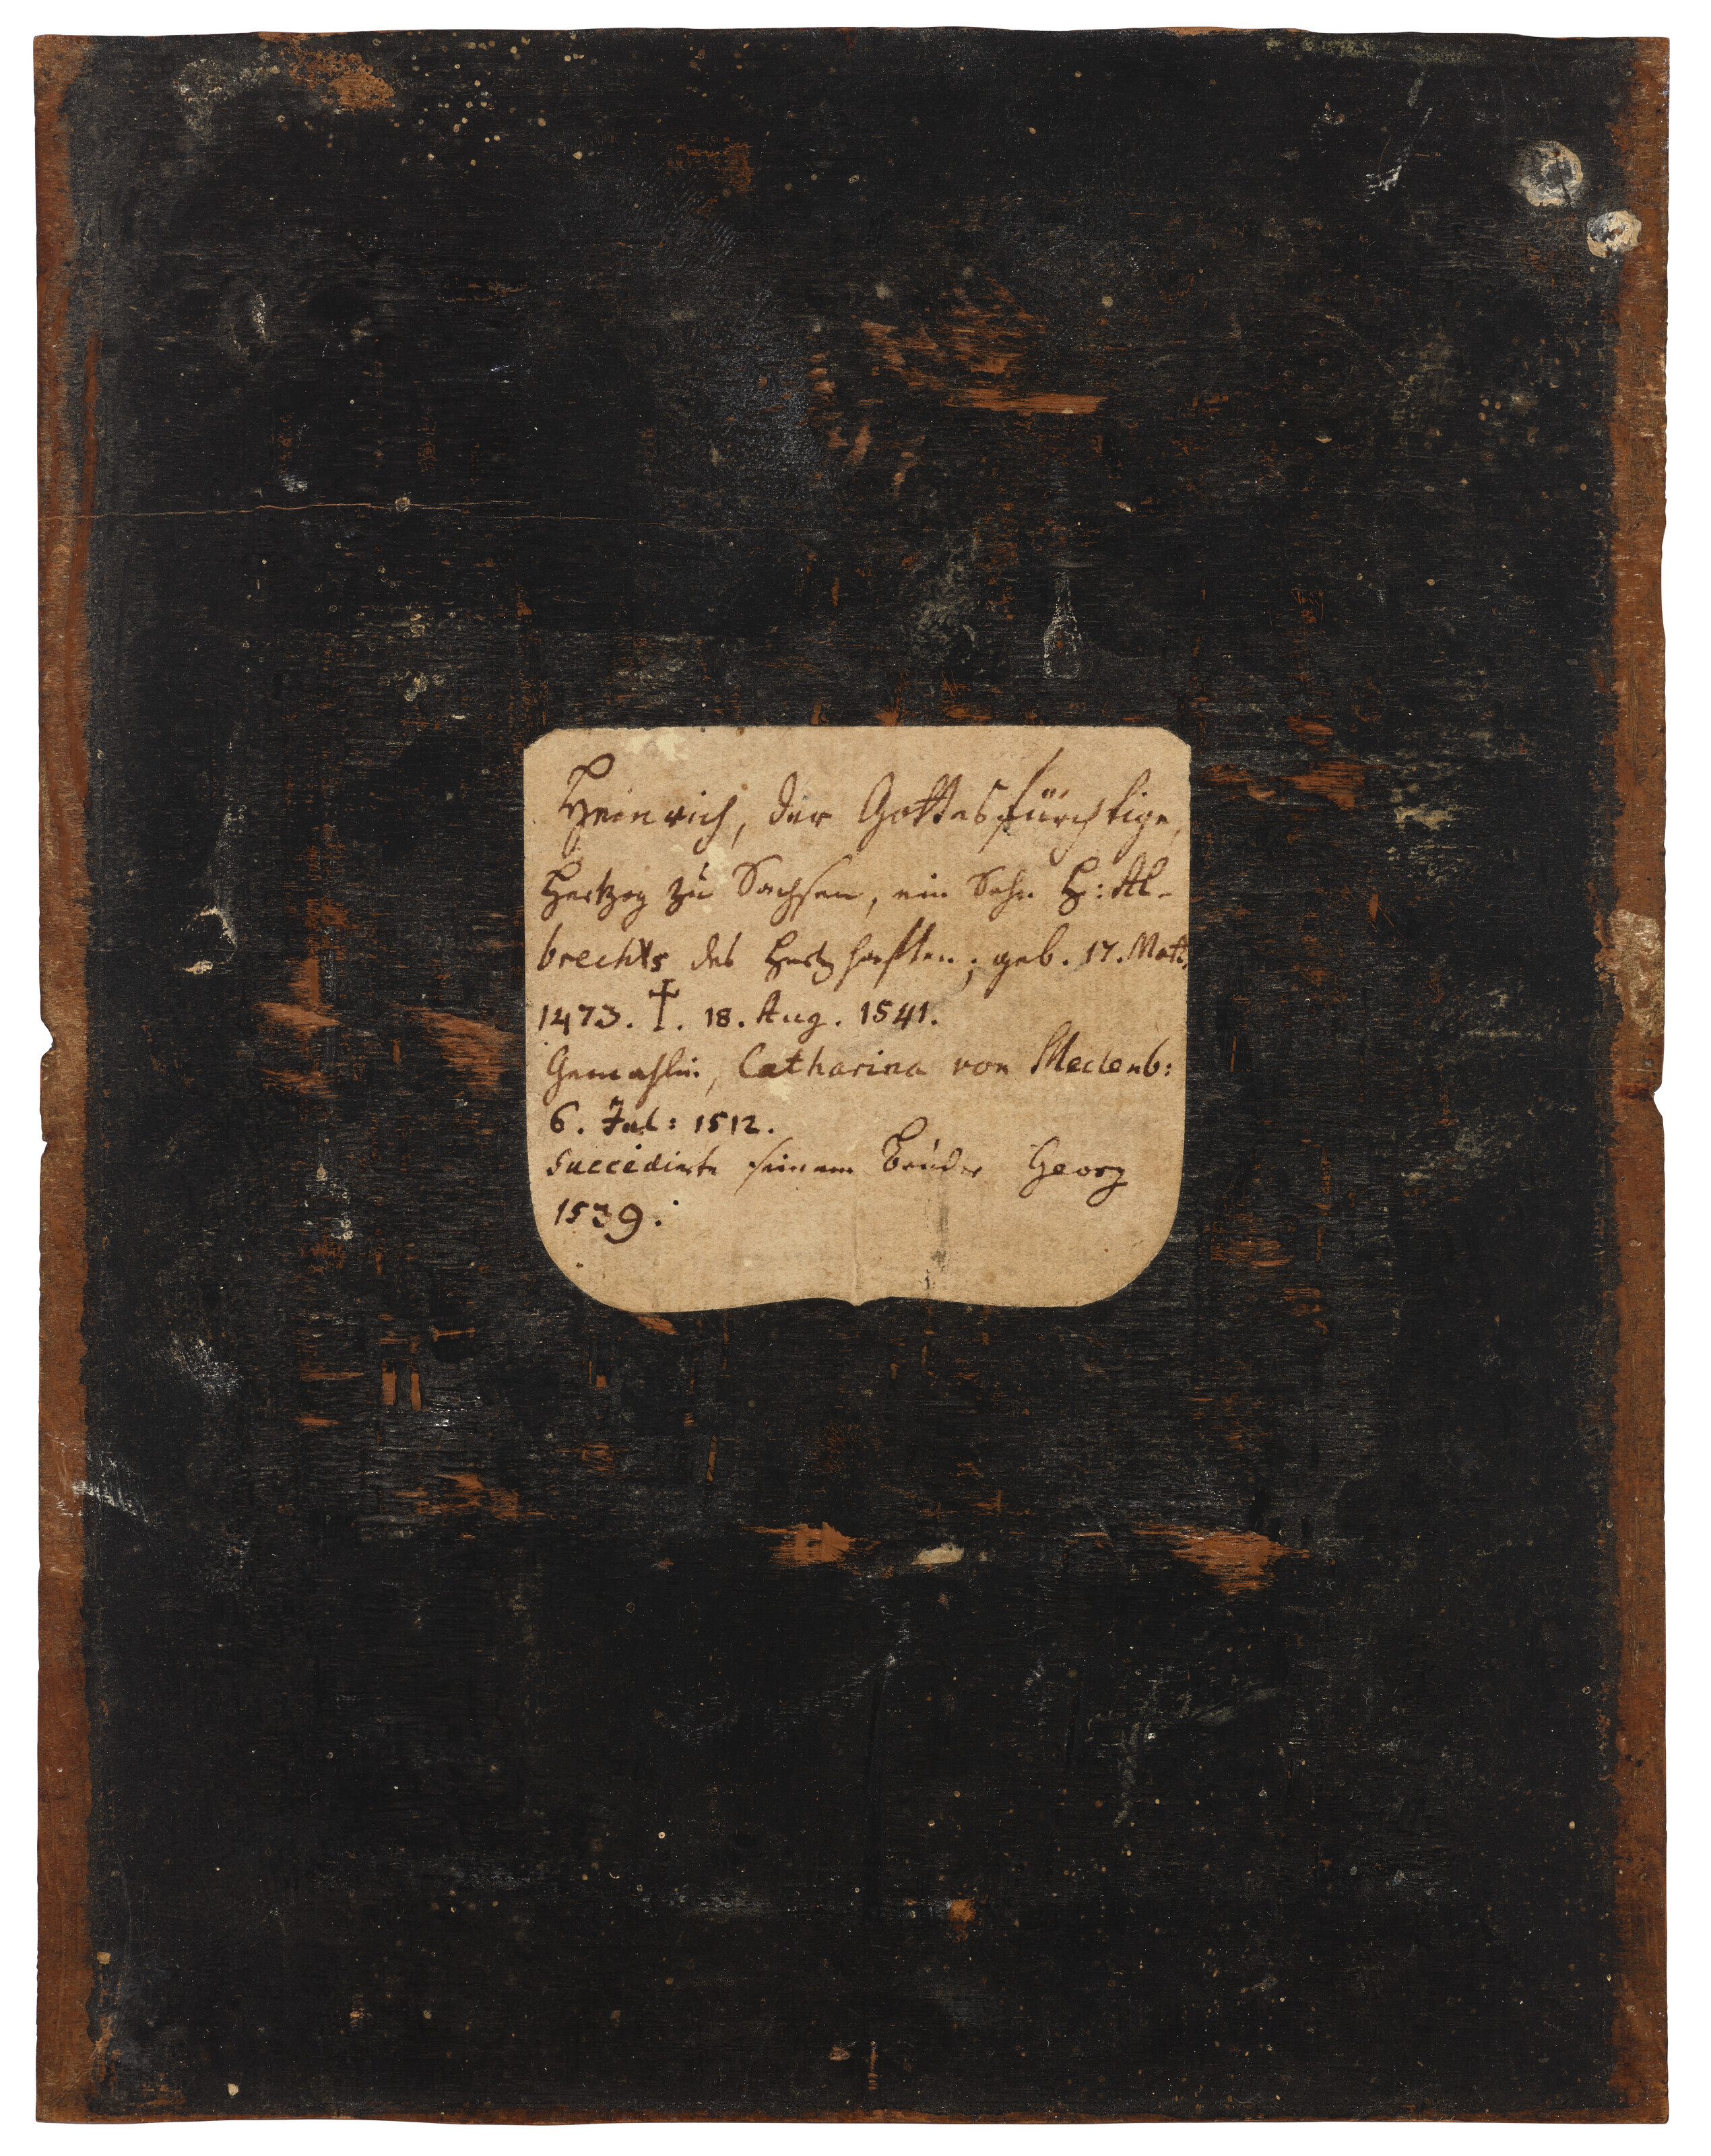 Heinrich, der Gottesfürchtige,
Hertzog zu Sachsen, ein Sohn H: Al-
brechts des Hertzhafften; geb. 17. Mart.
1473. †. 18. Aug. 1541.
Gemahlin, Catharina von Meclenb:
6. Jul: 1512.
succedirte seinem Bruder Georg
1539.